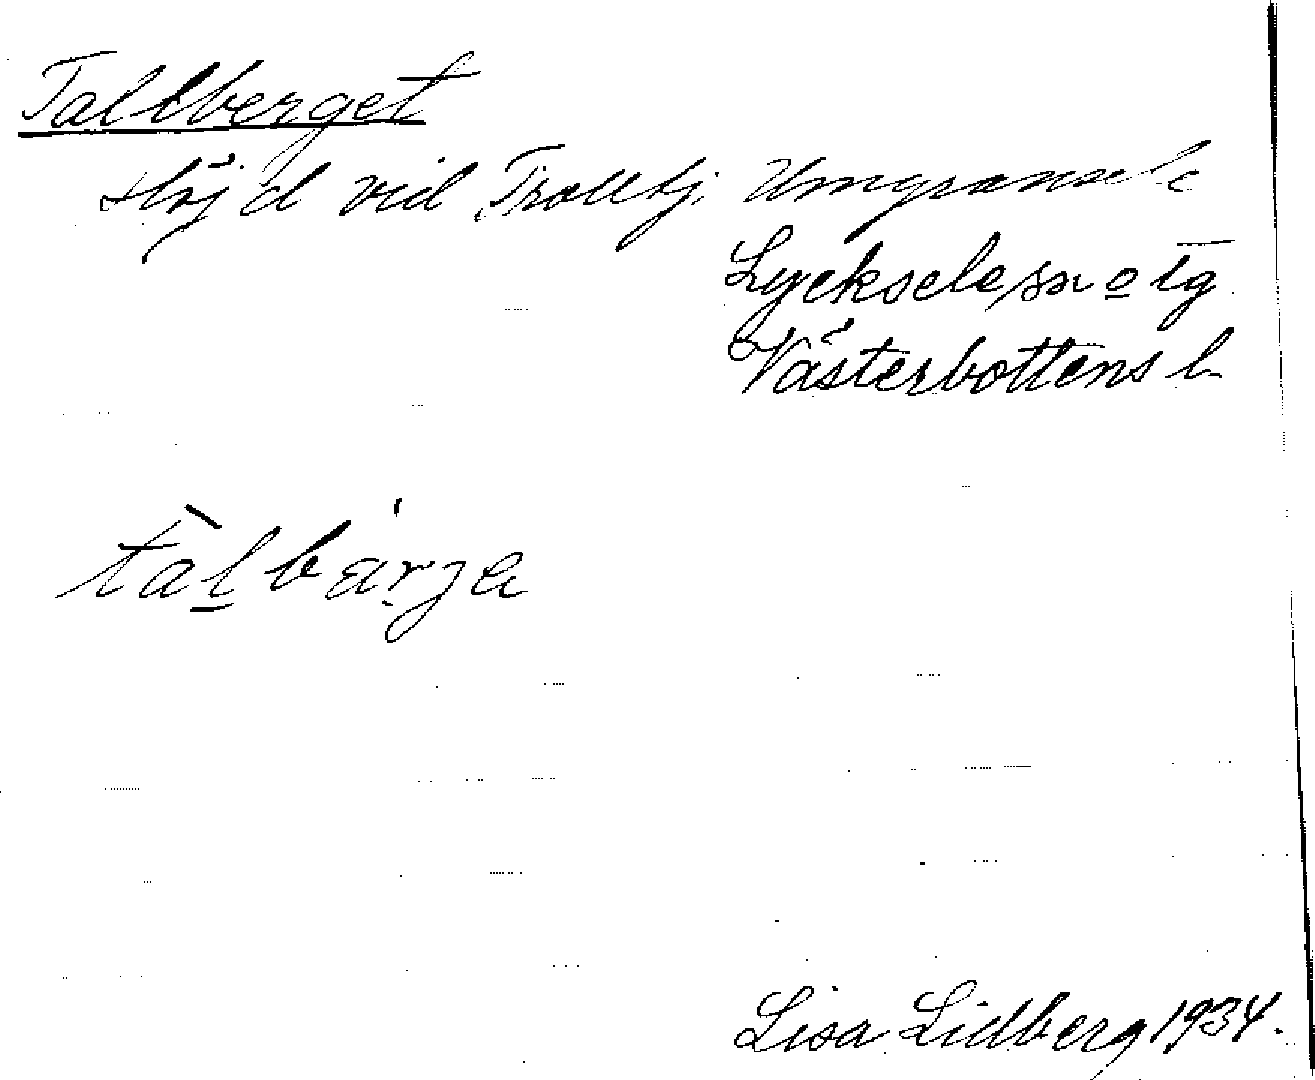 Tallberget
Höjd vid Trolltj. Umgransele
Lycksele sn o tg
Västerbottens l.
tàl bä́rjɐ
Lisa Lidberg 1934.